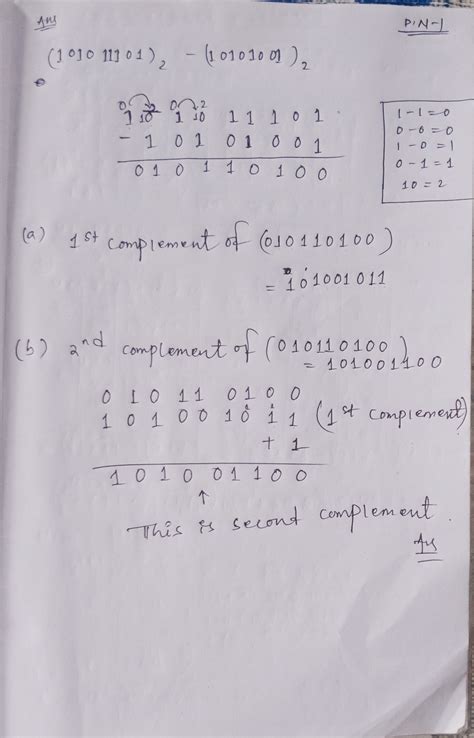 Ans
PiN-1
(1010 11101)₂ - (10101001)₂
0 2 0 2
1 10 1 10 1 1 1 0 1
- 1 0 1 0 1 0 0 1
0 1 0 1 1 0 1 0 0
1-1=0
0-0=0
1-0=1
0-1=1
10=2
(a) 1st complement of (010110100)
= 101001011
(b) 2nd complement of (010110100)
= 101001100
0 1 0 1 1 0 1 0 0
1 0 1 0 0 1 0 1 1 (1st complement)
+ 1
1 0 1 0 0 1 1 0 0
↑
This is second complement.
Ans